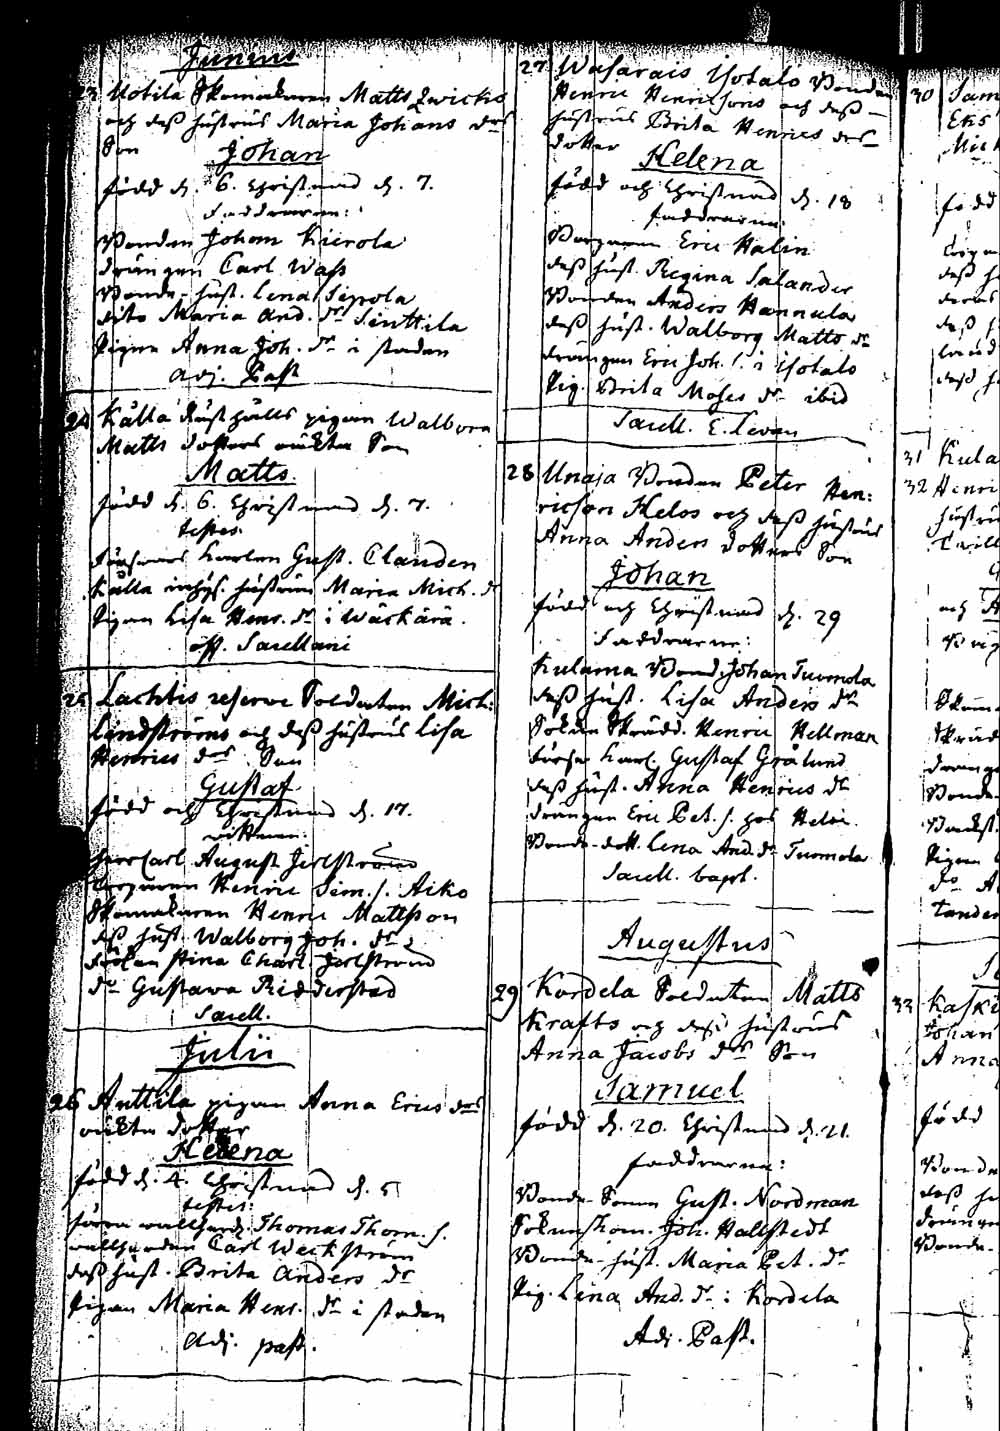 Junius
23 Uotila Skomakaren Matts Qwicks
och dess hustrus Maria Johans drs
Son Johan
född d. 6. Christnad d. 7.
Faddrarne:
Bonden Johan Kierola
drängen Carl Wass
Bonde-hust. Lena Sipola
dito Maria And. dr Sinttila
Pigan Anna Joh. dr i staden
Adj. Past
24 Källa Rusthålls pigan Walborg
Matts dotters oäkta Son
Matts
född d. 6. Christnad d. 7.
testes
Gust. Clauden
Källa inhys. hustrun Maria Mich. dr
Pigan Lisa Henr. dr i Wäckärä.
off. Sacellani
25 Lachtis reserve Soldaten Mich:
Lindströms och dess hustrus Lisa
Henrics drs Son
Gustaf
född och Christnad d. 17.
vittnen:
Herr Carl August Jerlström
Borgaren Henric Sim. s. Aiko
Skomakaren Henric Mattsson
dess hust. Walborg Joh. dr
Fröken Stina Charl. Jerlström
do Gustava Ridderstad
Sacell.
Julii
26 Anttila pigan Anna Erics drs
oäkta dotter
Helena
född d. 4. Christnad d. 5
testes
Thomas Thom. s.
Carl Weckström
dess hust. Brita Anders dr
Pigan Maria Henr. dr i staden
Adj. past.
27 Wasarais Isotalo Bonden
Henric Henricsons och dess
hustrus Brita Henrics drs
dotter Helena
född och Christnad d. 18
faddrarne:
Borgaren Eric Halin
dess hust. Regina Salander
Bonden Anders Hannula
dess hust. Walborg Matts dr
drängen Eric Joh. s. i Isotalo
Pig. Brita Moses dr ibid
Sacell. E. Levan
28 Unaja Bonden Peter Hen:
ricson Helos och dess hustrus
Anna Anders dotters Son
Johan
född och Christnad d. 29
Faddrarne:
Kulama Bond. Johan Tuomola
dess hust. Lisa Anders dr
Sokne Skrädd. Henric Hellman
Karl. Gustaf Grålund
dess hust. Anna Henrics dr
drängen Eric Pet. s. hos Heloi.
Bonde-dott. Lena And. dr Tuomola
Sacell. bapt.
Augustus
29 Kordela Soldaten Matts
Krafts och dess hustrus
Anna Jacobs drs Son
Samuel
född d. 20. Christnad d. 21.
faddrarne:
Bonde-Sonen Gust. Nordman
Sokneskom. Joh. Hallstedt
Bonde-hust. Maria Pet. dr
Pig. Lena And. dr i Kordela
Adj. Past.
30 Sam
Eks
Mich
född
31 Kula
32 Henri
hustru
och A
Bonde-
Pigan
do A
33 Kask
Johan
Anna
född
Bonde
dess hu
dränge
Bonde-